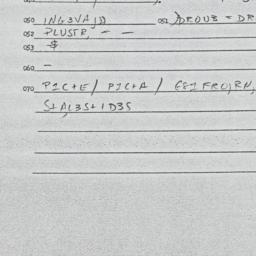 050 ING3VA,D 051 DROUB = DR
052 PLUSTR, - -
053 $
060 -
070 PIC+E/ PIC+A / E81 FRO,RN,
S+A,L3S+1D3S